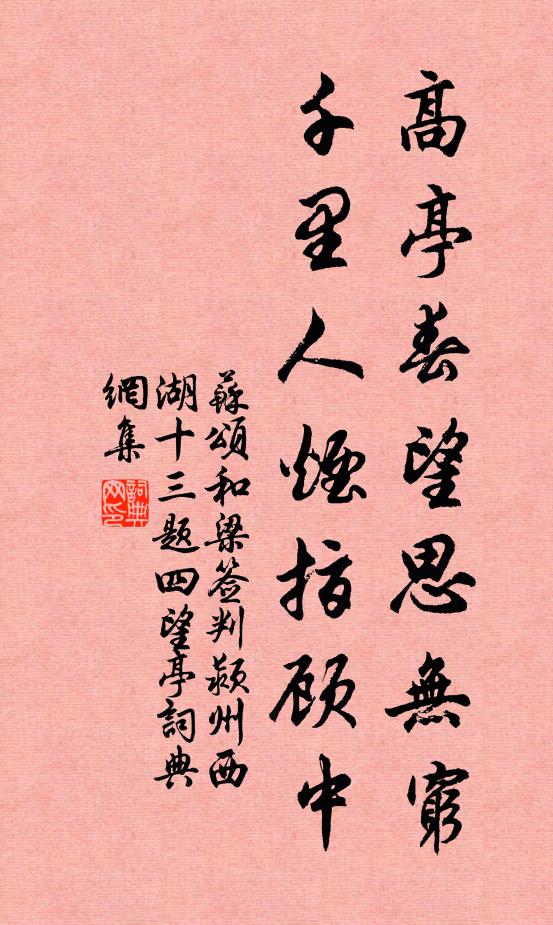 高亭春望思無窮
千里人煙指顾中
蘇頌和梁簽判颍州西
湖十三题四望亭詞典
網集
詞典網印